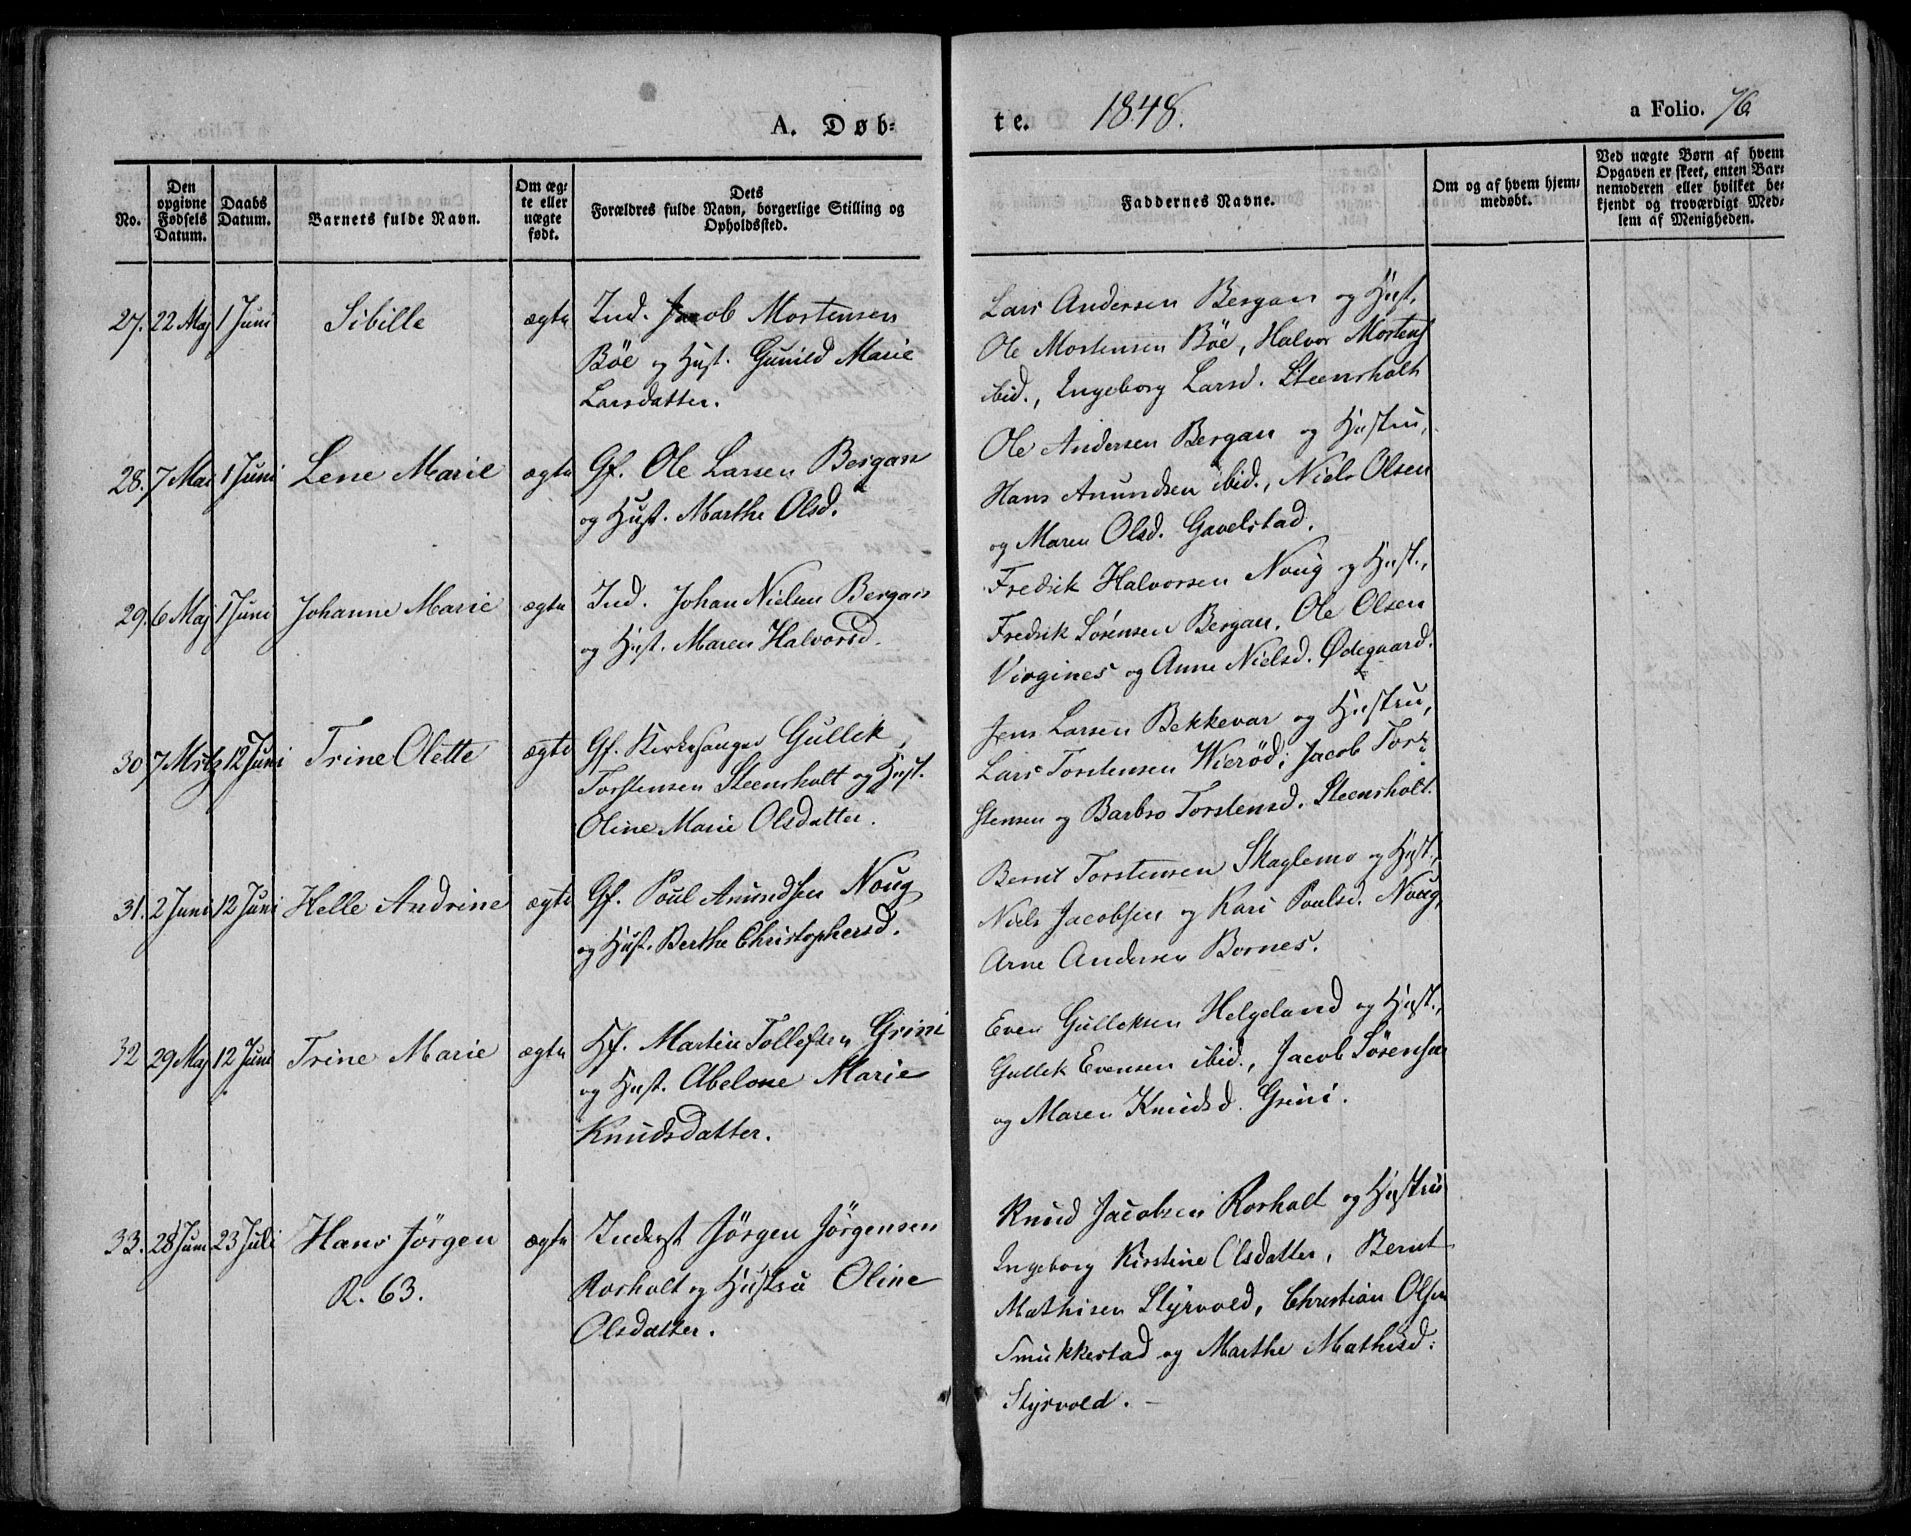 A. Døb-
te. 1848. a Folio. 76
No.
Den opgivne Fødsels Datum.
Daabs Datum.
Barnets fulde Navn.
Om ægte eller uægte født.
Dets Forældres fulde Navn, borgerlige Stilling og Opholdssted.
Faddernes Navne.
Om og af hvem hjemmedøbt.
Ved uægte Børn af hvem Opgaven er skeet, enten Barnemoderen eller hvilket bekjendt og troværdigt Medlem af Menigheden.
27. 22 Maj 1 Juni Sibille ægte Ind. Jacob Mortensen
Bøe og Hust. Gunild Marie
Larsdatter.
Lars Andersen Bergan og Hust.
Ole Mortensen Bøe, Halvor Mortens
ibid., Ingeborg Larsd. Steensholt
28. 7 Mai 1 Juni Lene Marie ægte Gf. Ole Larsen Bergan
og Hust. Marthe Olsd.
Ole Andersen Bergan og Hustru,
Hans Anundsen ibid., Niels Olsen
og Maren Olsd. Gavelstad.
29. 6 Maj 1 Juni Johanne Marie ægte Ind. Johan Nielsen Bergan
og Hust. Maren Halvorsd.
Fredrik Halvorsen Noug og Hust.,
Fredrik Sørensen Bergan, Ole Olsen
Virgines og Anne Nielsd. Ødegaard.
30. 7 Mrtz 12 Juni Trine Olette ægte Gf. Kirkesanger Gullek
Torstensen Steensholt og Hust.
Oline Marie Olsdatter.
Jens Larsen Bekkevar og Hustru,
Lars Torstensen Wierød, Jacob Tor-
stensen og Barbro Torstensd. Steensholt.
31. 2 Juni 12 Juni Helle Andrine ægte Gf. Poul Anundsen Noug
og Hust. Berthe Christophersd.
Bernt Torstensen Skaglemo og Hust.,
Niels Jacobsen og Kari Poulsd. Noug,
Arne Andersen Bornes.
32 29 Maj 12 Juni Trine Marie ægte Hf. Martin Tollefsen Grini
og Hust. Abelone Marie
Knudsdatter.
Even Gulleksen Helgeland og Hust.,
Gullek Evensen ibid., Jacob Sørensen
og Maren Knudsd. Grini.
33. 28 Juni 23 Juli Hans Jørgen ægte Inderst Jørgen Jørgensen
R. 63.
Rorholt og Hustru Oline
Olsdatter.
Knud Jacobsen Rorholt og Hustru
Ingeborg Kirstine Olsdatter, Bernt
Mathisen Styrvold, Christian Olsen
Smukkestad og Marthe Mathisd:
Styrvold. -